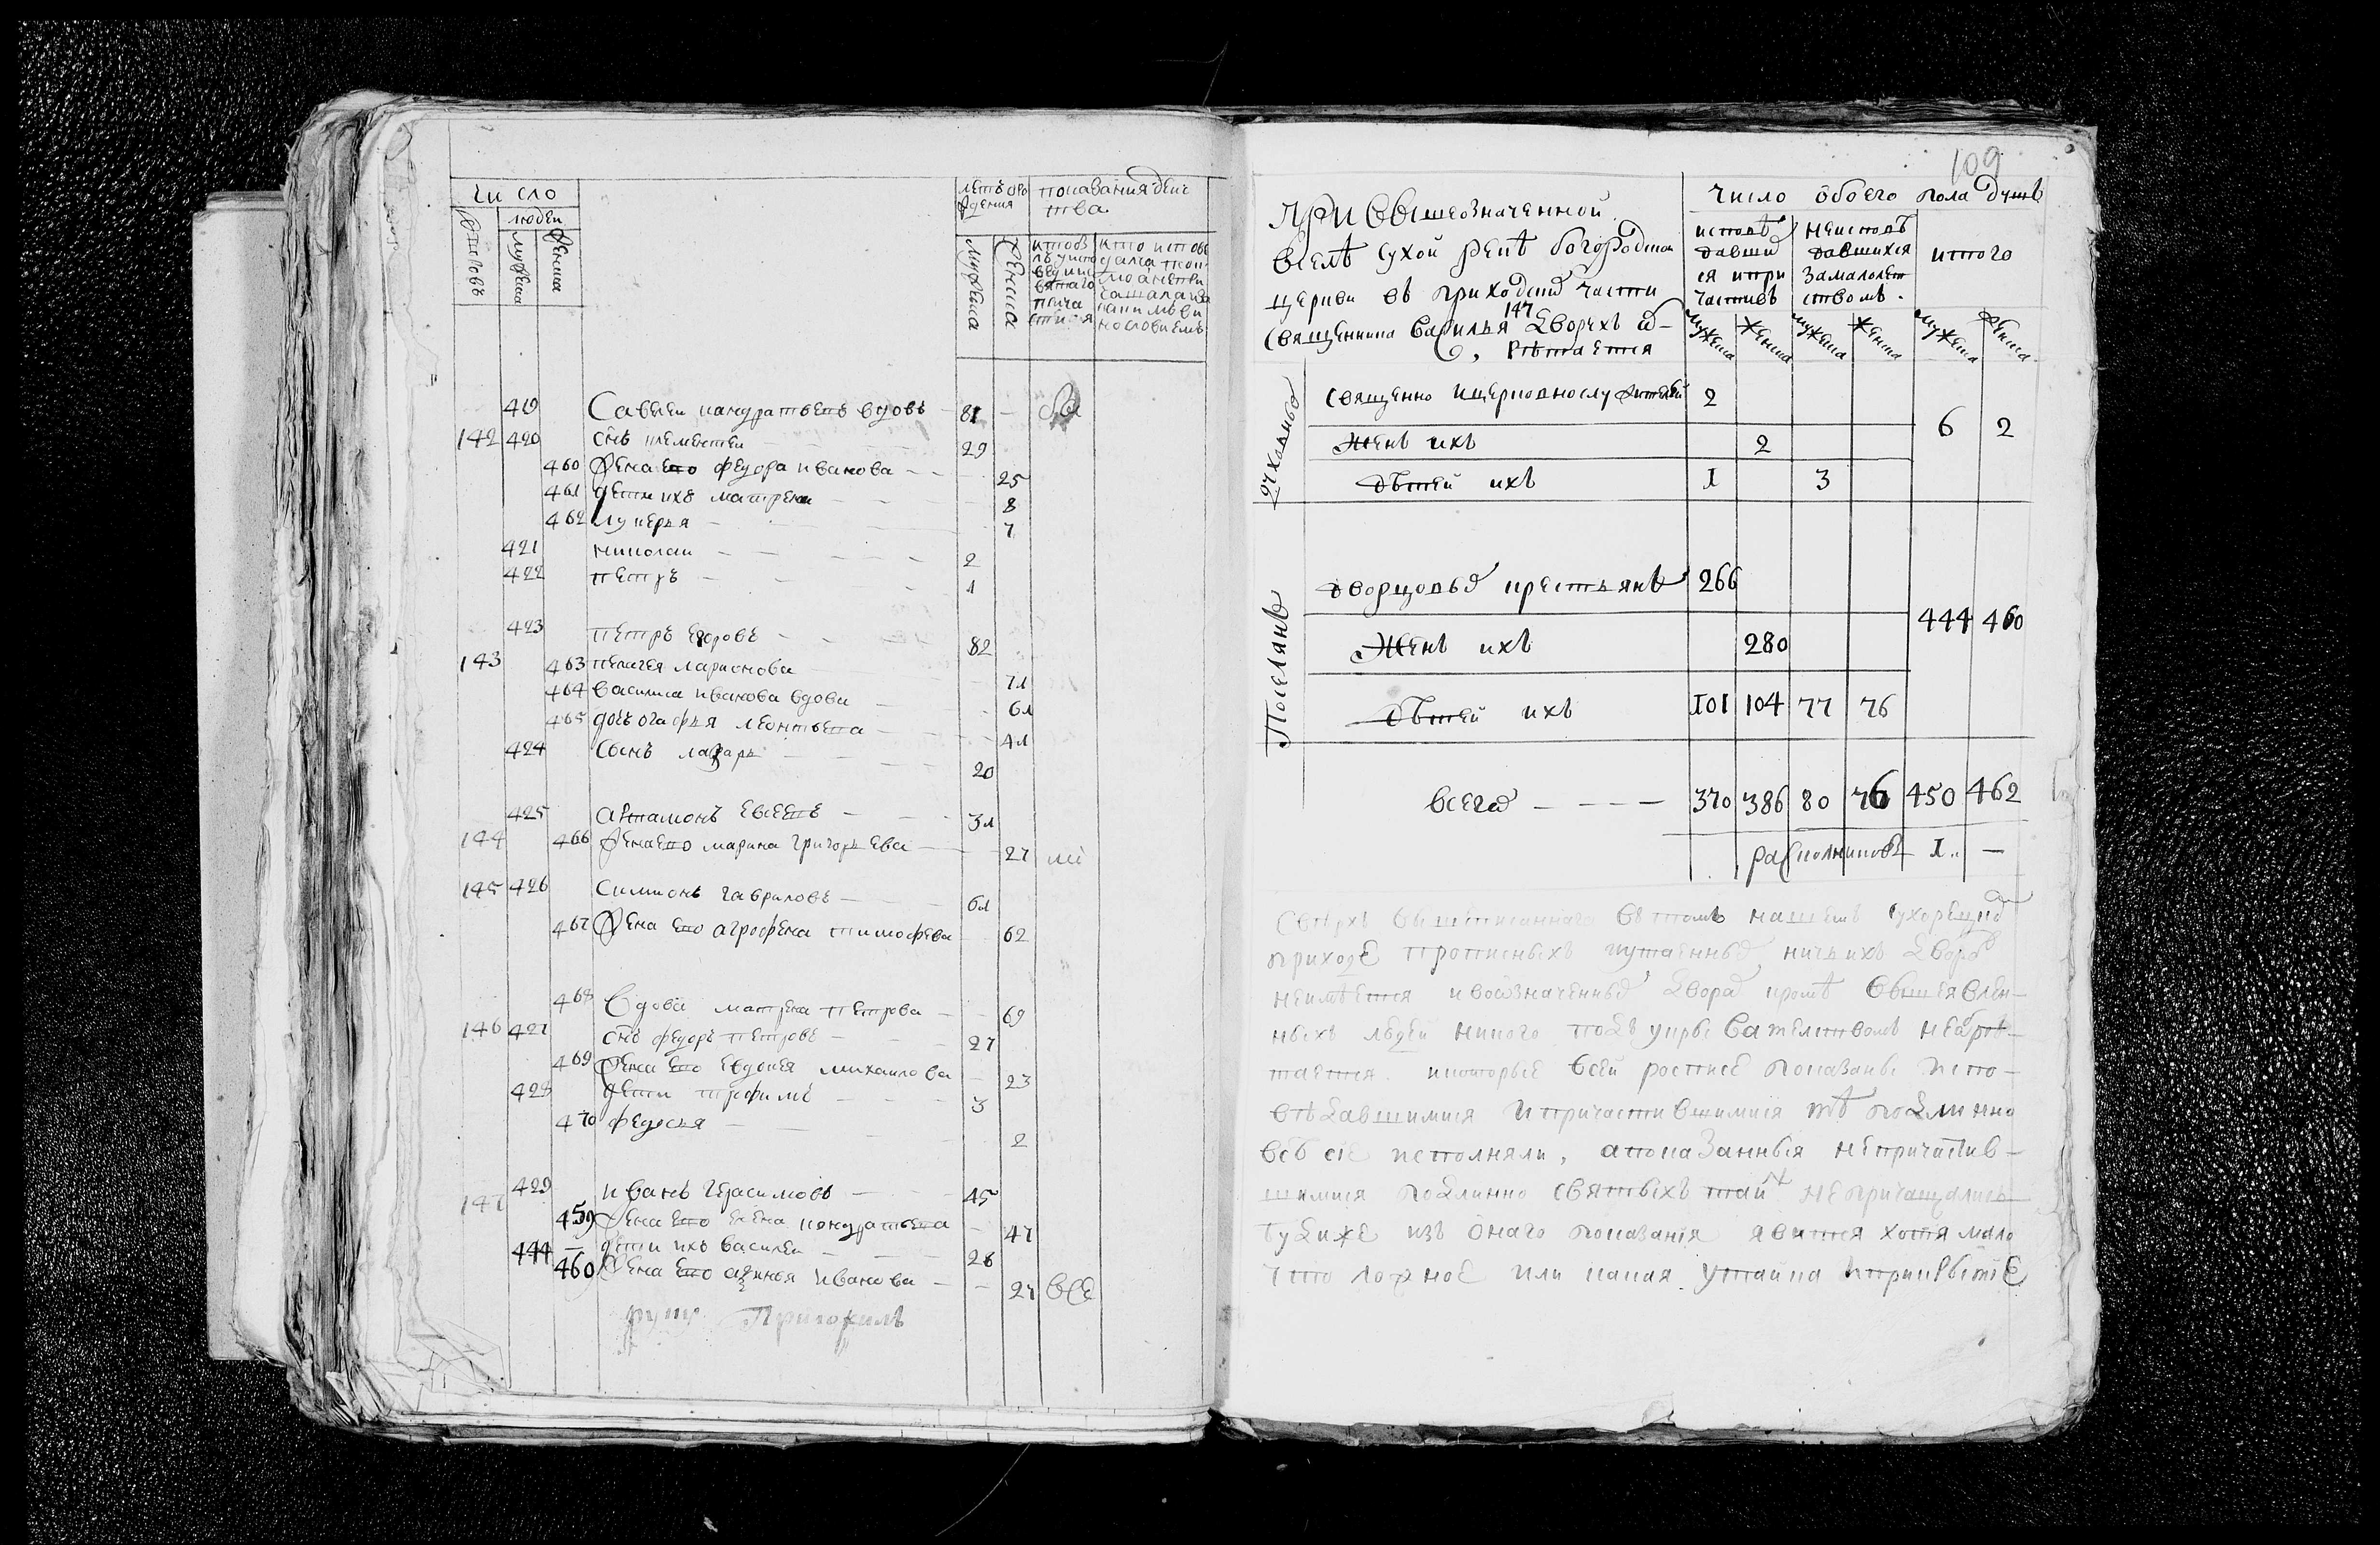 число
людей
дворовъ
мужеска
женска
лѣтъ о рождения
показания действа
мужеска
женска
419 Савелеи кандратьевъ вдовъ 81
142 420 снъ клементеи 29
460 жена ево федора иванова 25
461 дети ихъ матрена 8
462 лукерья 7
421 николаи 2
422 петръ 1
423 петръ егоровъ 82
143 463 пелагея ларионова 71
464 василиса иванова вдова 61
465 дочь огафья леонтьева 41
424 сынъ лазарь 20
425 артамонъ евсеевъ 31
144 466 жена ево марина григорьева 27
145 426 симионъ гавриловъ 61
467 жена ево агрофена тимофеева 62
468 вдова матрена петрова 69
146 427 снъ федоръ петровъ 27
469 жена ево евдокея михаилова 23
428 дети трофимъ 3
470 федосья 2
147 429 иванъ герасимовъ 45
459 жена ево елена кондратьева 47
444 дети ихъ василеи 28
460 жена ево аксинья иванова 27 все
руку приложилъ
109
при вышеозначенной
в селѣ сухой рекѣ богородской
церкви въ приходской части
священника василья 147 дворехъ о-
брѣтается
число обоего пола душъ
исповѣдавшихся и причастившихся
неисповѣдавшихся за малолетствомъ
итого
мужеска женска мужеска женска мужеска женска
духовныхъ
священно и церковнослужителей 2
женъ ихъ 2
6 2
дѣтей ихъ 1 3
поселянъ
дворцовыхъ крестьянъ 266
444 460
женъ ихъ 280
дѣтей ихъ 101 104 77 76
всего 370 386 80 76 450 462
раскольниковъ 1 —
сверхъ вышеписаннаго въ томъ нашемъ сухорецкомъ
приходе прописныхъ и утаенныхъ ничьихъ дворовъ
неимѣется и во означенныхъ дворахъ кромѣ вышеявлен-
ныхъ людей никого подъ укрывателствомъ необрѣ-
тается. и которые в сей росписе показаны испо-
вѣдавшимися и причастившимися тѣ подлинно
все сие исполняли, а показанныя непричастив-
шимися подлинно святыхъ таинъ не причащались
буде же изъ онаго показания явится хотя мало
что ложное или какая утайка и прикрытие